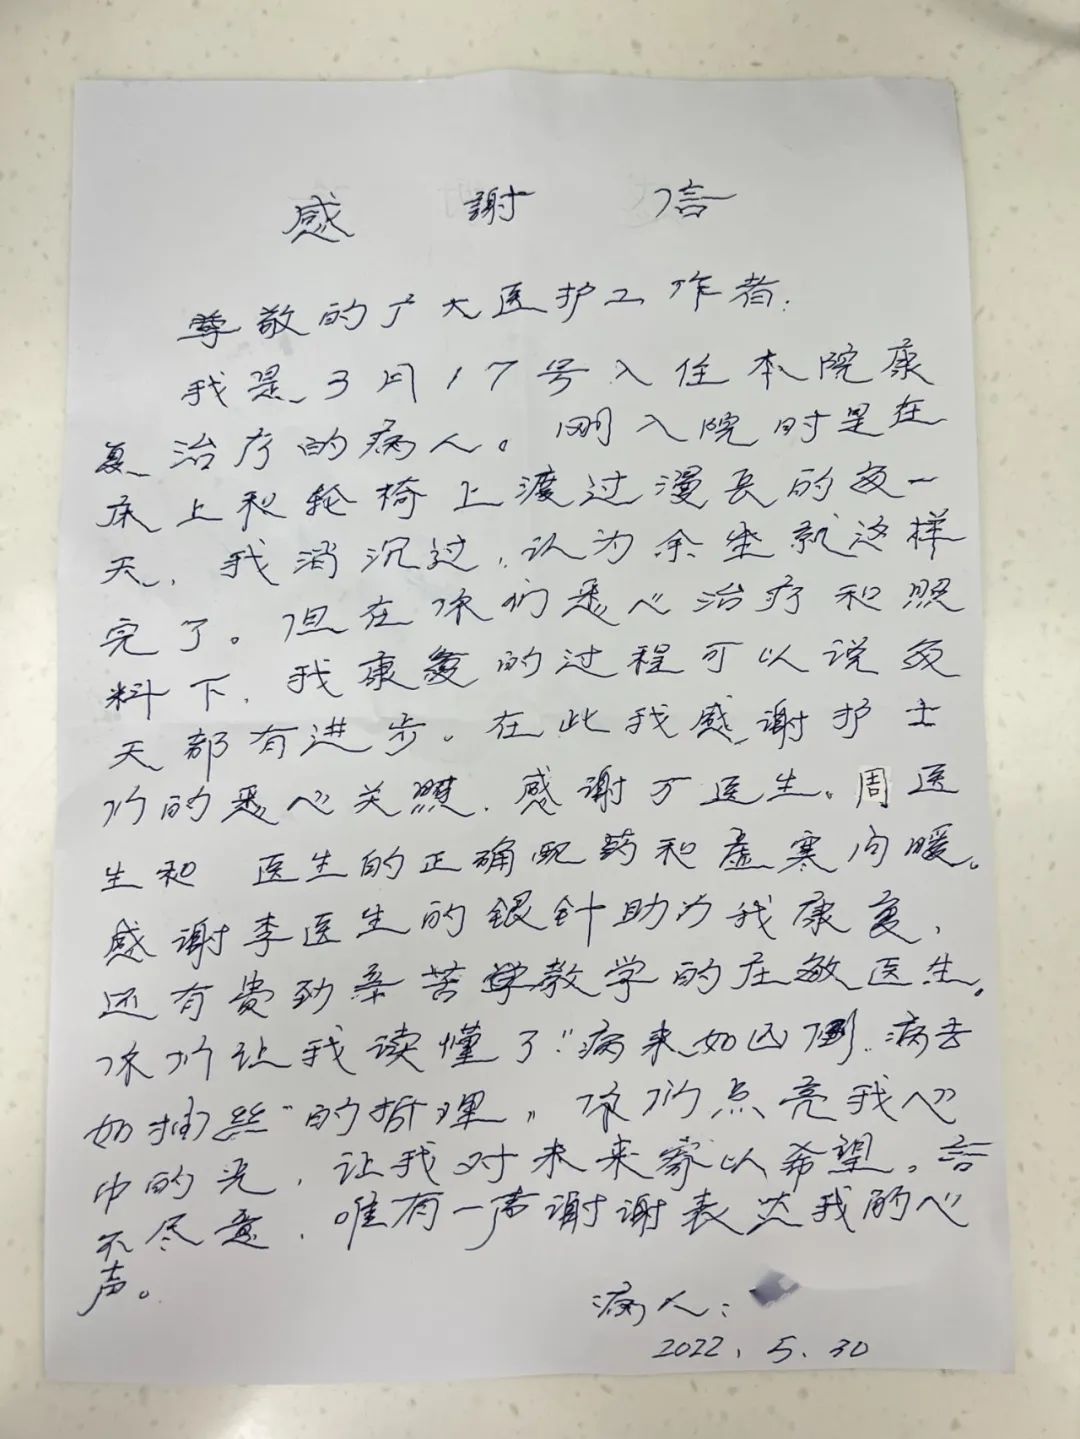 感謝信
尊敬的广大医护工作者：
我是3月17号入住本院康
复治疗的病人。刚入院时是在
床上和轮椅上渡过漫长的每一
天，我消沉过，认为余生就这样
完了。但在你们悉心治疗和照
料下，我康复的过程可以说每
天都有进步。在此我感谢护士
们的悉心关照，感谢丁医生。周医
生和 医生的正确配药和虚寒问暖。
感谢李医生的银针助力我康复，
还有费劲辛苦教学的庄敏医生。
你们让我读懂了“病来如山倒，病去
如抽丝”的哲理。你们点亮我心
中的光，让我对未来寄以希望。言
不尽意，唯有一声谢谢表达我的心
声。
病人：
2022.5.30